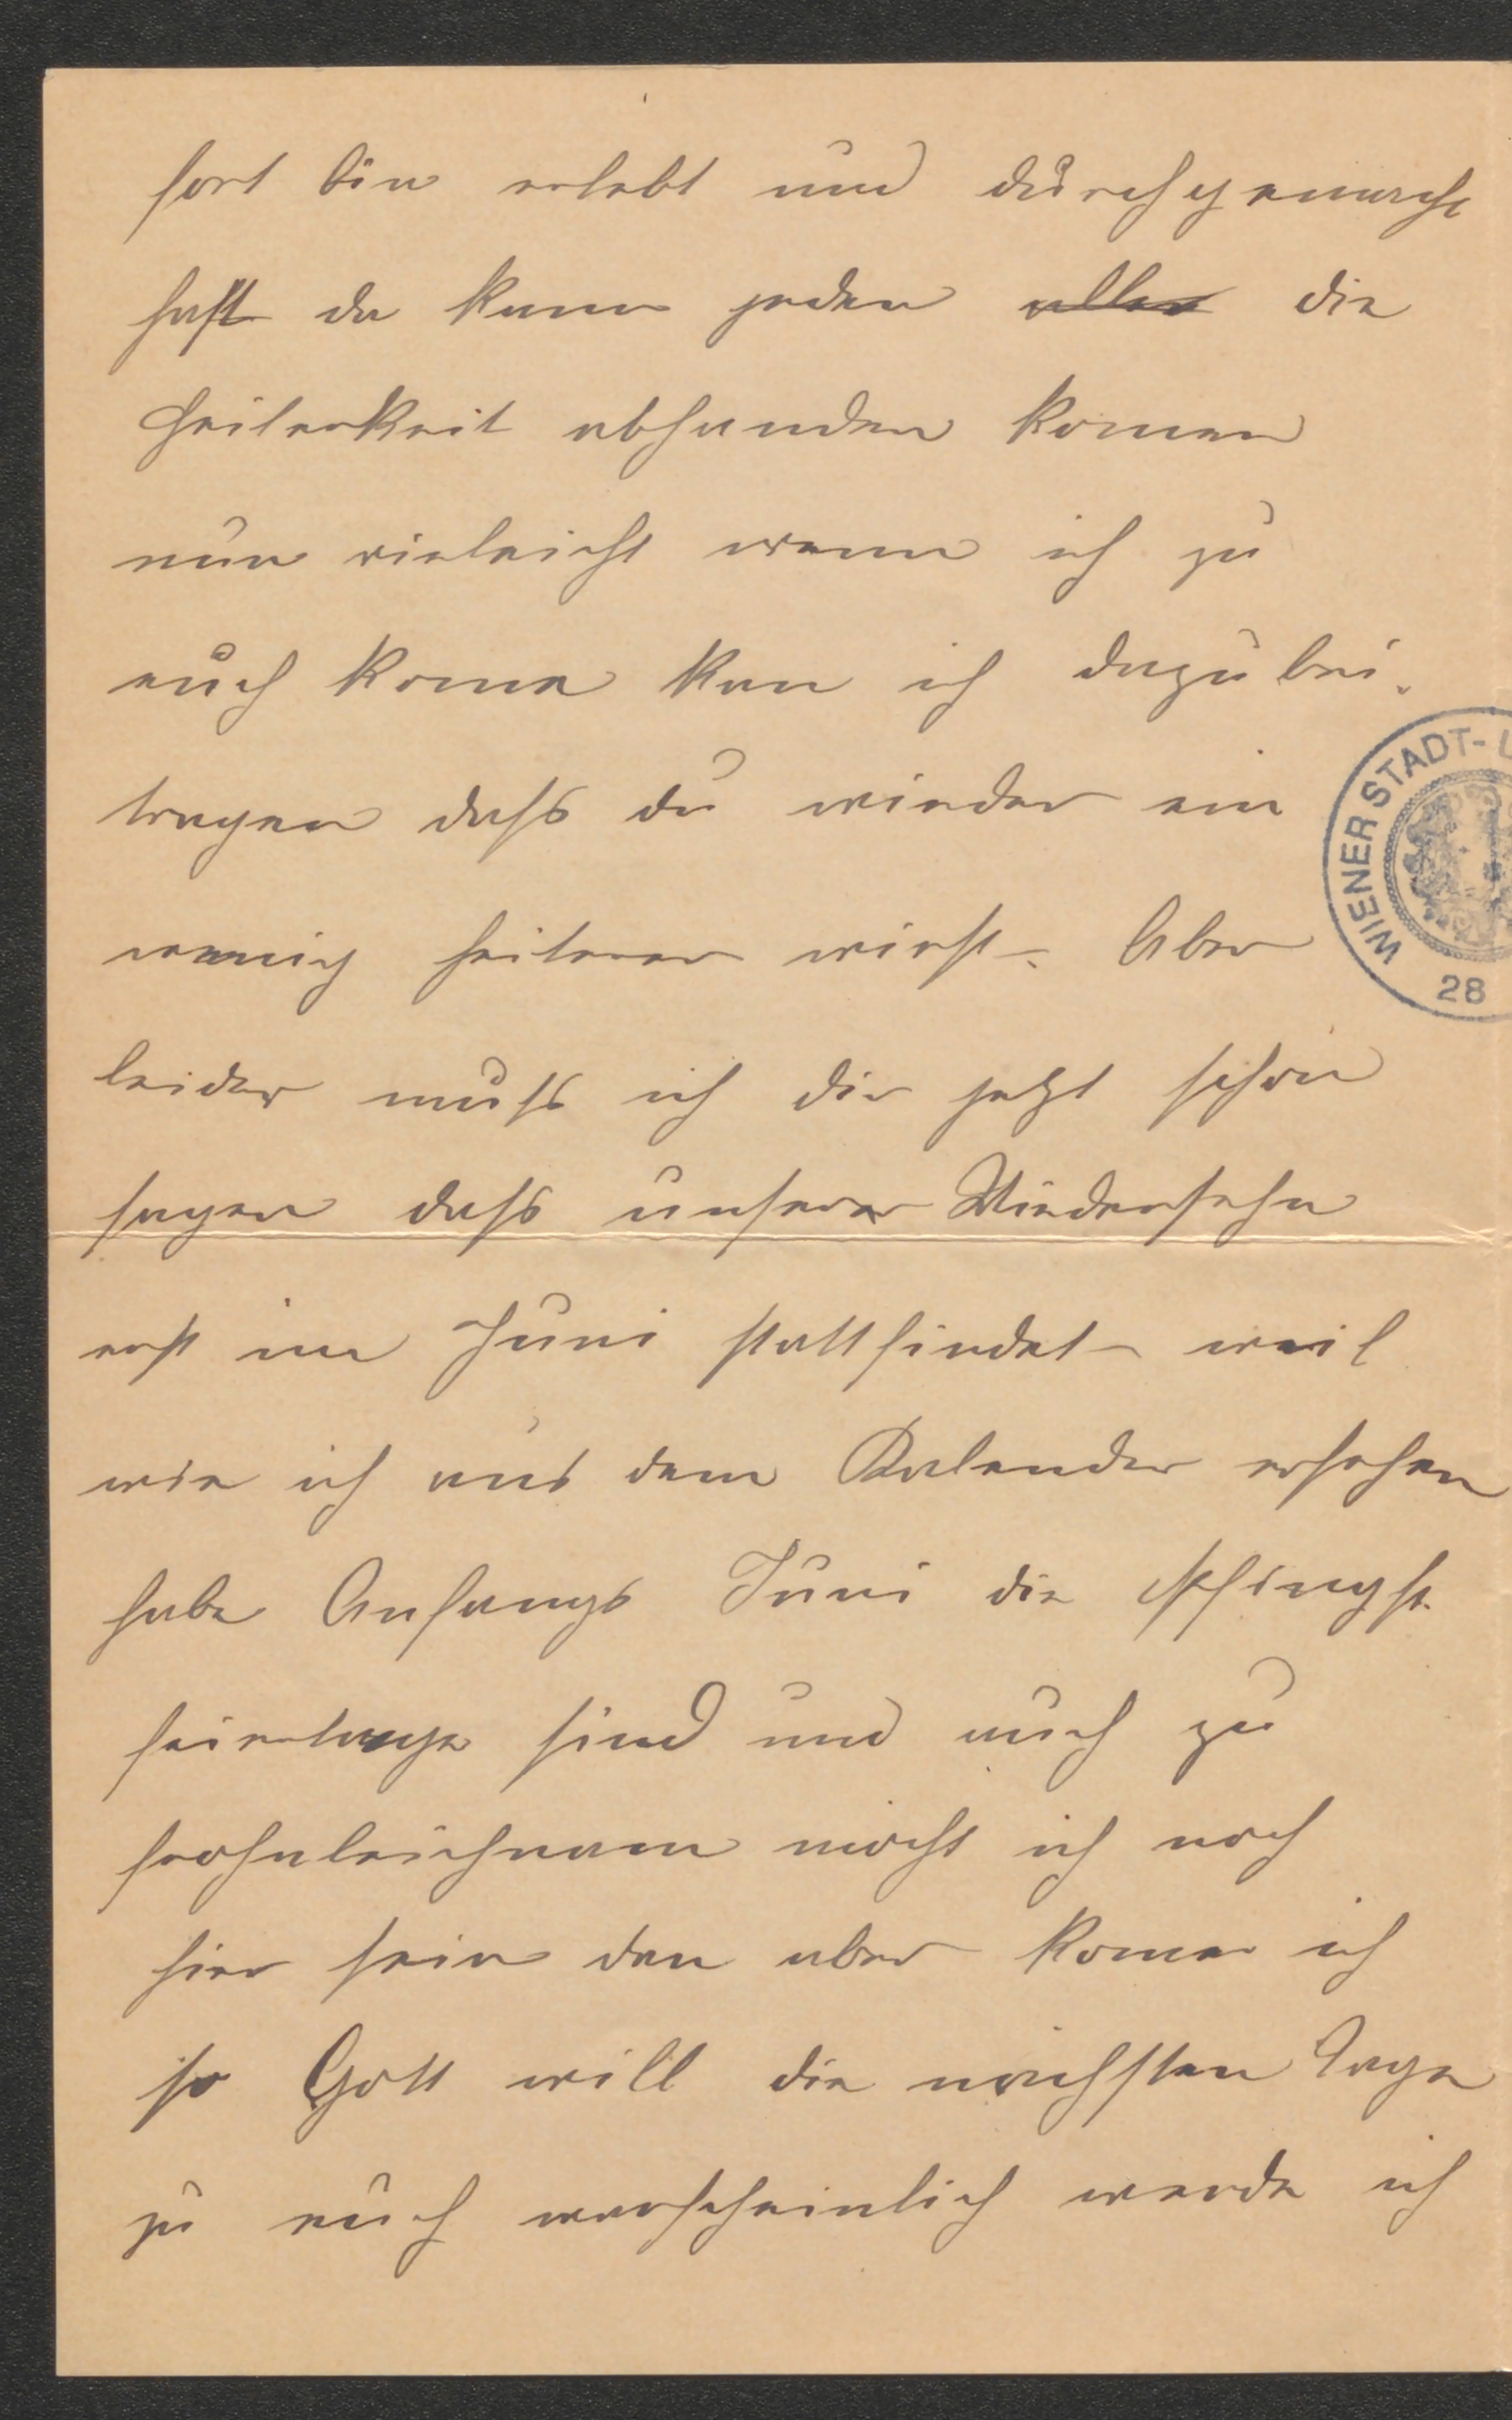 fort bin erlebt und durchgemacht
hast da kann jeden aller die
Heiterkeit abhanden komen
nun vieleicht wenn ich zu
euch kome kan ich dazu bei-
tragen dass du wieder ein
wennig heiterer wirst. Aber
leider muss ich dir jetzt schon
sagen dass unserer Wiedersehn
erst im Juni stattfindet weil
wie ich aus dem Kalender ersehen
habe Anfangs Juni die Pfingst-
feiertage sind und auch zu
frohnleichnam möcht ich noch
hier sein den aber kome ich
so Gott will die nächsten Tage
zu euch warscheinlich werde ich
WIENER STADT-
28